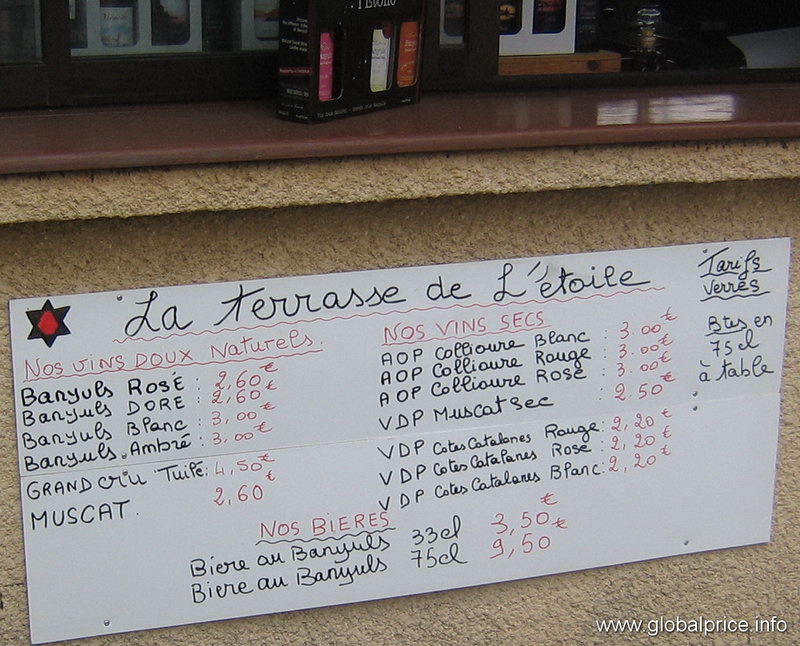 L'Etoile
La terrasse de L'étoile
Tarifs
verres
Btes en
75 cl
à table
Nos vins doux Naturels.
Banyuls Rosé : 2,60 €
Banyuls DORÉ : 2,60 €
Banyuls Blanc : 3,00 €
Banyuls Ambré : 3,00 €
GRAND cru Tuilé: 4,50 €
MUSCAT. 2,60 €
NOS VINS SECS
AOP Collioure Blanc : 3.00 €
AOP Collioure Rouge : 3.00 €
AOP Collioure Rosé : 3.00 €
VDP Muscat sec : 2.50 €
VDP Cotes Catalanes Rouge: 2,20 €
VDP Cotes Catalanes Rosé : 2,20 €
VDP Cotes Catalanes Blanc: 2,20 €
NOS BIERES
Biere au Banyuls 33cl 3,50 €
Biere au Banyuls 75cl 9,50 €
www.globalprice.info